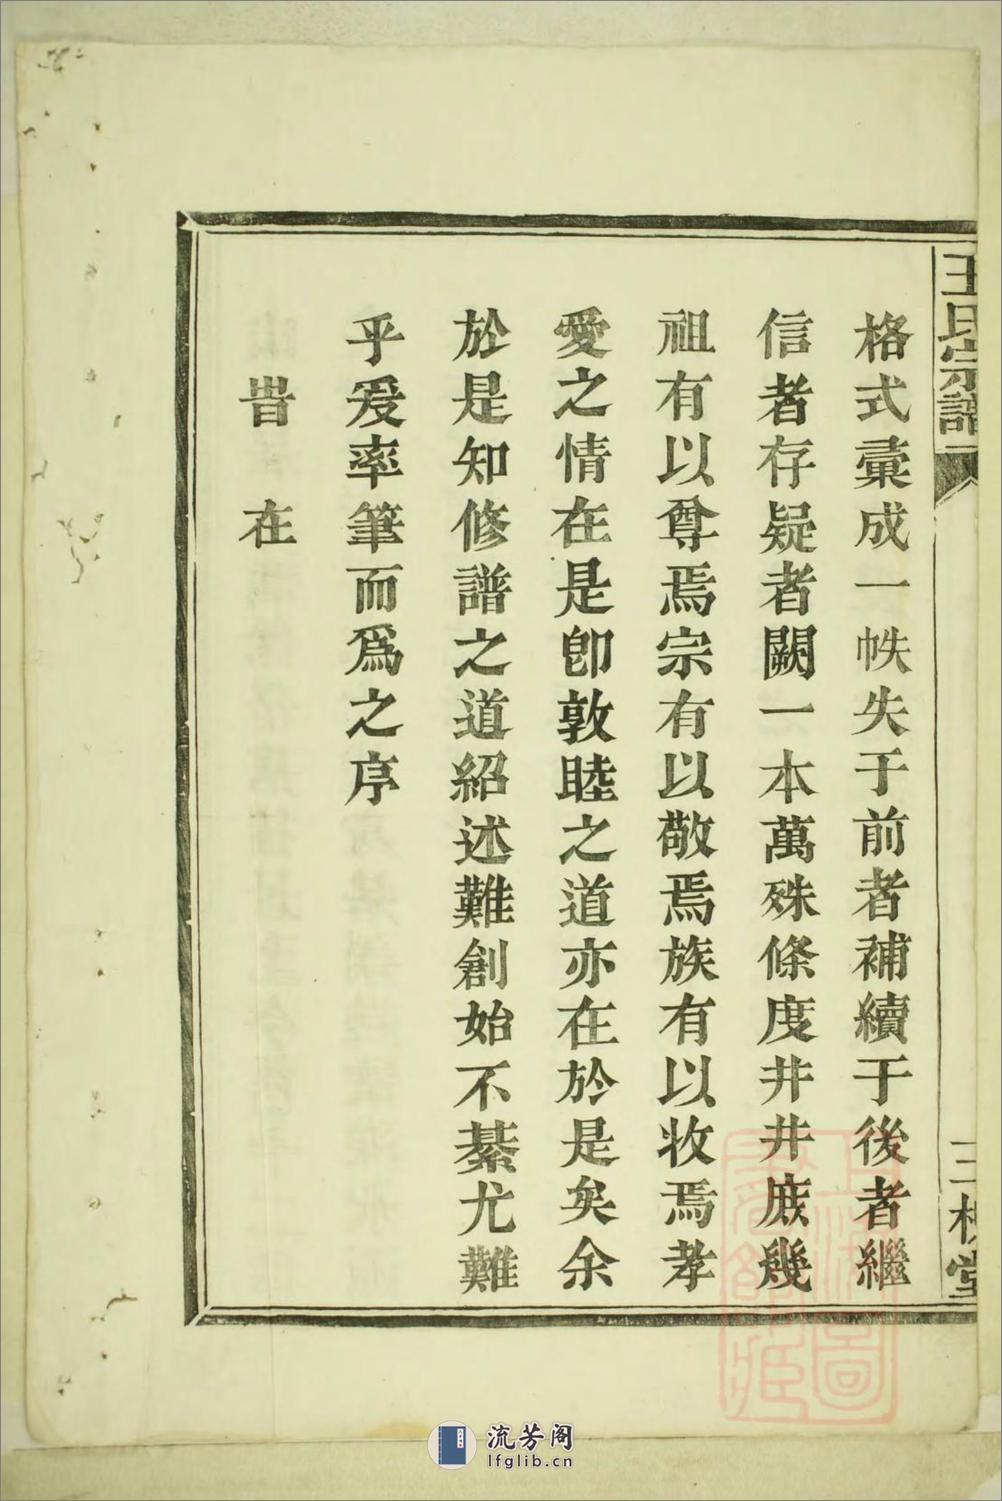 王氏宗譜
三槐堂
格式彙成一帙失于前者補續于後者繼
信者存疑者闕一本萬殊條度井井庶幾
祖有以尊焉宗有以敬焉族有以收焉孝
愛之情在是卽敦睦之道亦在於是矣余
於是知修譜之道紹述難創始不綦尤難
乎爰率筆而爲之序
旹在
上海圖書館藏
流芳阁
lfglib.cn